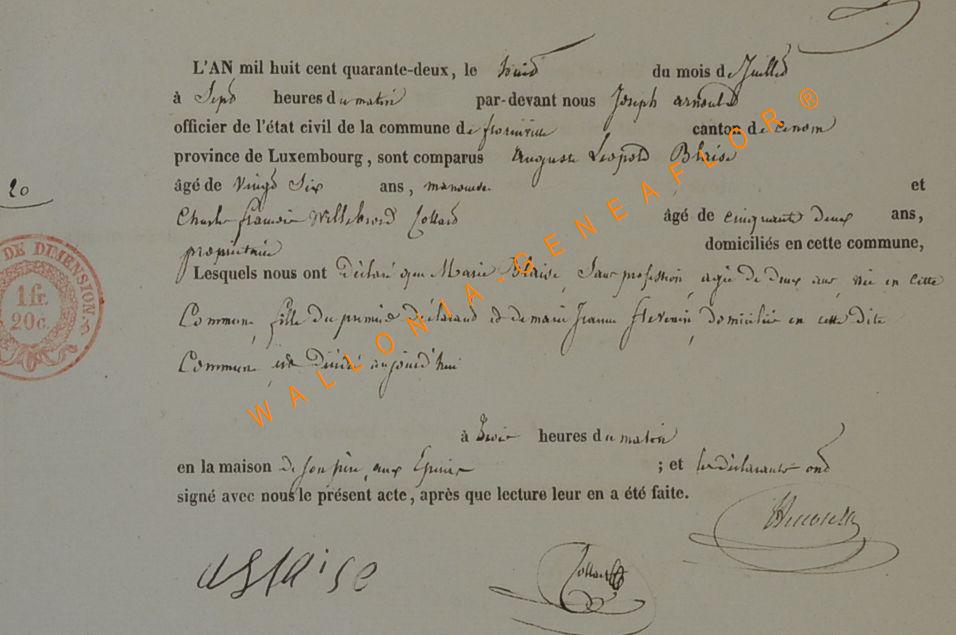 L'AN mil huit cent quarante-deux, le huit du mois de Juillet
à Sept heures du matin par-devant nous Joseph arnould
officier de l'état civil de la commune de florenville canton de
province de Luxembourg, sont comparus Auguste Leopold Blaise
20
âgé de vingt Six ans, manoeuvre et
Charles françois Willebrord Collard âgé de cinquante deux ans,
propriétaire domiciliés en cette commune,
Lesquels nous ont déclaré que Marie Blaise, Sans profession, agée de deux ans, née en cette
Commune, fille du premier déclarant et de marie Jeanne domiciliée en cette dite
Commune, est décédée aujourd'hui
à trois heures du matin
en la maison de son père, aux Epioux ; et les déclarants ont
signé avec nous le présent acte, après que lecture leur en a été faite.
ABlaise Collard
DE DIMENSION
1 fr.
20 c.
WALLONIA-GENEAFLOR®